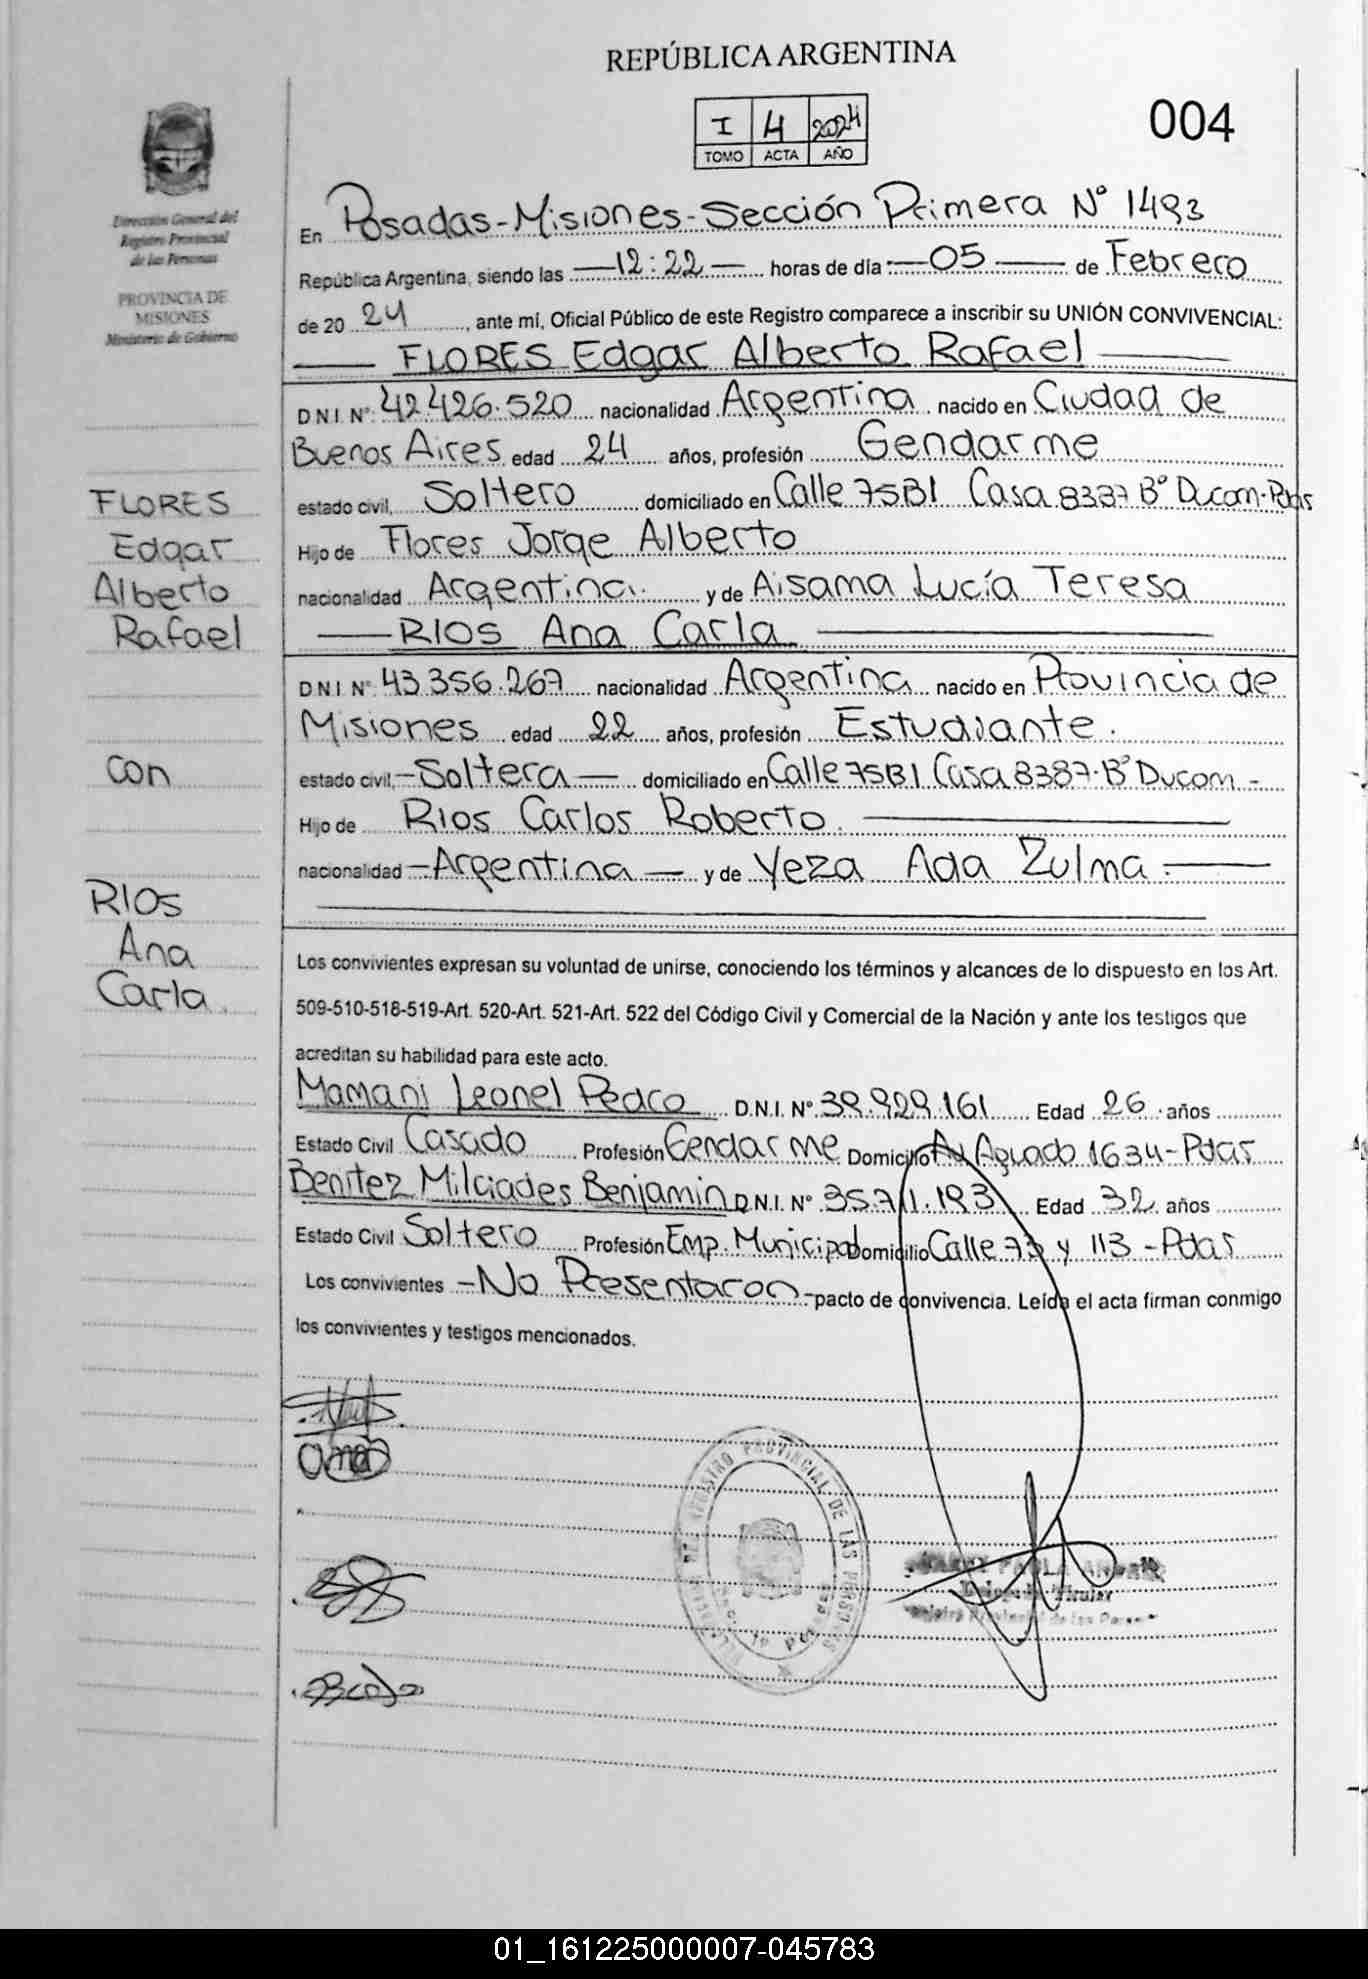 REPÚBLICA ARGENTINA
I 4 2024
TOMO ACTA AÑO
004
Dirección General del
Registro Provincial
de las Personas
PROVINCIA DE
MISIONES
Ministerio de Gobierno
En Posadas-Misiones-Sección Primera N° 1493
República Argentina, siendo las 12:22 horas de día 05 de Febrero
de 20 24, ante mí, Oficial Público de este Registro comparece a inscribir su UNIÓN CONVIVENCIAL:
FLORES Edgar Alberto Rafael
D N I. N° 42 426.520 nacionalidad Argentina nacido en Ciudad de
Buenos Aires edad 24 años, profesión Gendarme
estado civil, Soltero domiciliado en Calle 75B1 Casa 8387 B° Ducom-Pdas
Hijo de Flores Jorge Alberto
nacionalidad Argentina. y de Aisama Lucía Teresa
RIOS Ana Carla
D N I. N° 43 356.267 nacionalidad Argentina nacido en Provincia de
Misiones edad 22 años, profesión Estudiante.
estado civil, -Soltera- domiciliado en Calle 75B1 Casa 8387-B° Ducom-
Hijo de Rios Carlos Roberto.
nacionalidad -Argentina- y de Yeza Ada Zulma-
FLORES
Edgar
Alberto
Rafael
Con
RIOS
Ana
Carla.
Los convivientes expresan su voluntad de unirse, conociendo los términos y alcances de lo dispuesto en los Art.
509-510-518-519-Art. 520-Art. 521-Art. 522 del Código Civil y Comercial de la Nación y ante los testigos que
acreditan su habilidad para este acto.
Mamani Leonel Pedro D.N.I. N° 39.929.161 Edad 26 años
Estado Civil Casado Profesión Gendarme Domicilio Av Aguado 1634-Pdas
Benitez Milciades Benjamin D.N.I. N° 35.711.193 Edad 32 años
Estado Civil Soltero Profesión Emp. Municipal Domicilio Calle 73 y 113 -Pdas
Los convivientes -No Presentaron- pacto de convivencia. Leída el acta firman conmigo
los convivientes y testigos mencionados.
REGISTRO PROVINCIAL DE LAS PERSONAS
Titular
Registro Provincial de las Personas
01_161225000007-045783